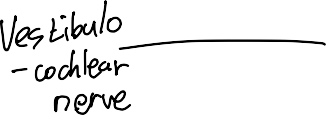 Vestibulo
-cochlear
nerve